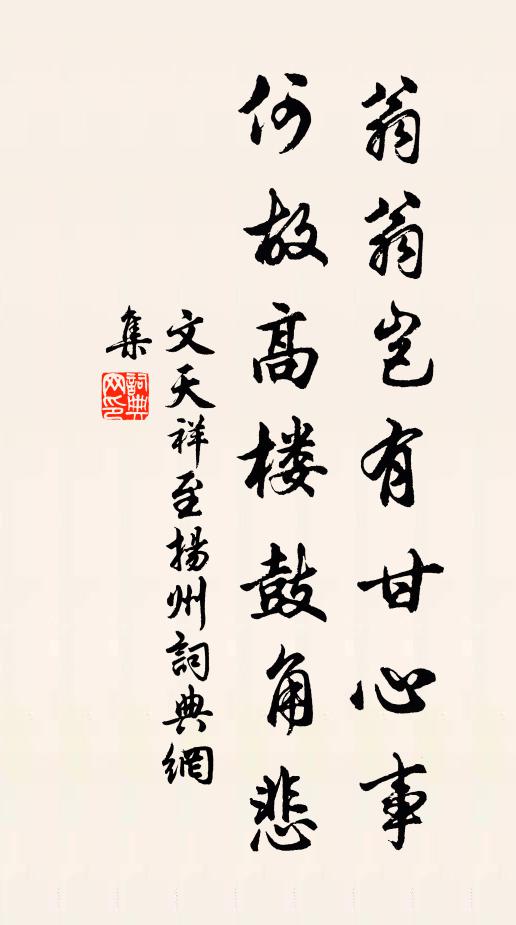 翁翁岂有甘心事
何故高楼鼓角悲
文天祥至揚州詞典網
集
詞典网印